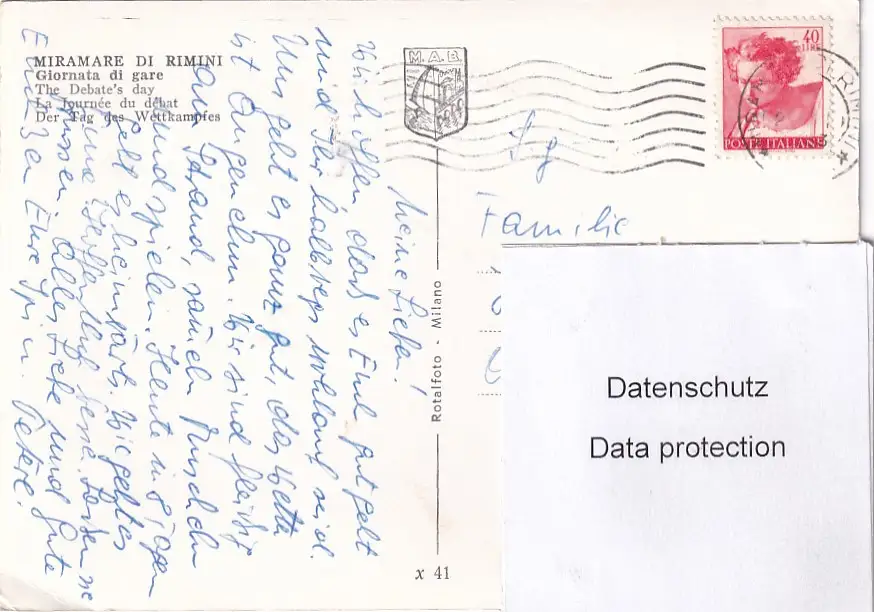 MIRAMARE DI RIMINI
Giornata di gare
The Debate's day
La Journée du débat
Der Tag des Wettkampfes
M. A. B.
40
LIRE
POSTE ITALIANE
RIMINI
Meine Lieben!
Wir hoffen dass es Euch gut geht
und Ihr halbwegs wohlauf seid.
Uns geht es ganz gut, das Wetter
ist angenehm. Wir sind fleißig
am Strand, Muscheln
und spielen. Heute in 8 Tagen
geht es heimwärts. Wie geht es
hoffentlich besser.
Alles Liebe und Gute
Eure
Familie
Rotalfoto - Milano
x 41
Datenschutz
Data protection